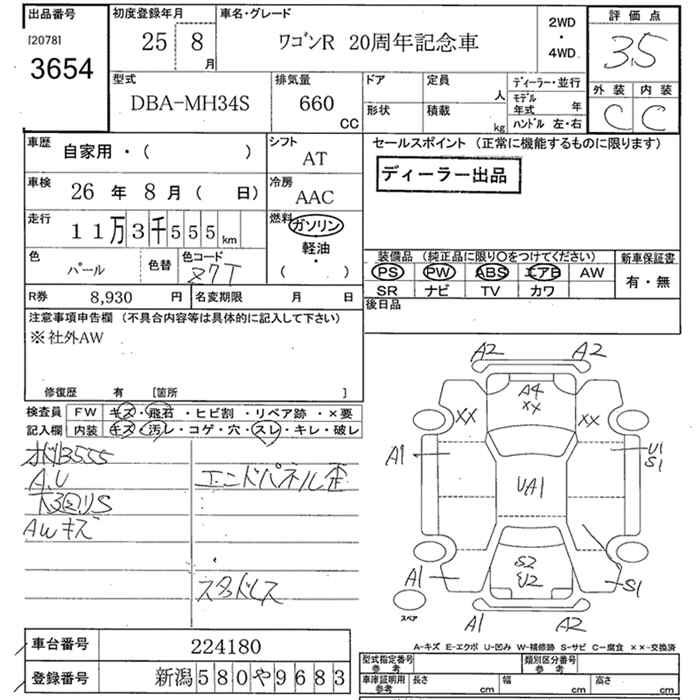 出品番号 初度登録年月 車名・グレード 2WD・4WD 評価点
25年 8月 ワゴンR 20周年記念車 3.5
3654
外装 内装
C C
型式 排気量 ドア 定員 人 ディーラー・並行
DBA-MH34S 660 CC 形状 積載 kg モデル年式 年
ハンドル 左・右
車歴 自家用・( ) シフト AT セールスポイント (正常に機能するものに限ります)
ディーラー出品
車検 26年 8月 ( 日) 冷房 AAC
走行 11万3千555km 燃料 ガソリン 軽油・( )
色 パール 色替 色コード Z7T
装備品 (純正品に限り○をつけてください) 新車保証書
PS PW ABS エアB AW 有・無
SR ナビ TV カワ
R券 8,930 円 名変期限 月 日 後日品
注意事項申告欄 (不具合内容等は具体的に記入して下さい)
※社外AW
修復歴 有 [箇所 ]
検査員 FW キズ・飛石・ヒビ割・リペア跡・×要
記入欄 内装 キズ・汚レ・コゲ・穴・スレ・キレ・破レ
A.U エンドパネル歪
AWキズ
スタドレス
A2 A2
A4
XX XX XX
A1 U1
S1
UA1
S2
U2
A1 S1
スペア A1 A2
A-キズ E-エクボ U-凹み W-補修跡 S-サビ C-腐食 ××-交換済
車台番号 224180
登録番号 新潟580や9683
型式指定番号参考 類別区分番号参考
車庫証明用参考 長さ cm 幅 cm 高さ cm